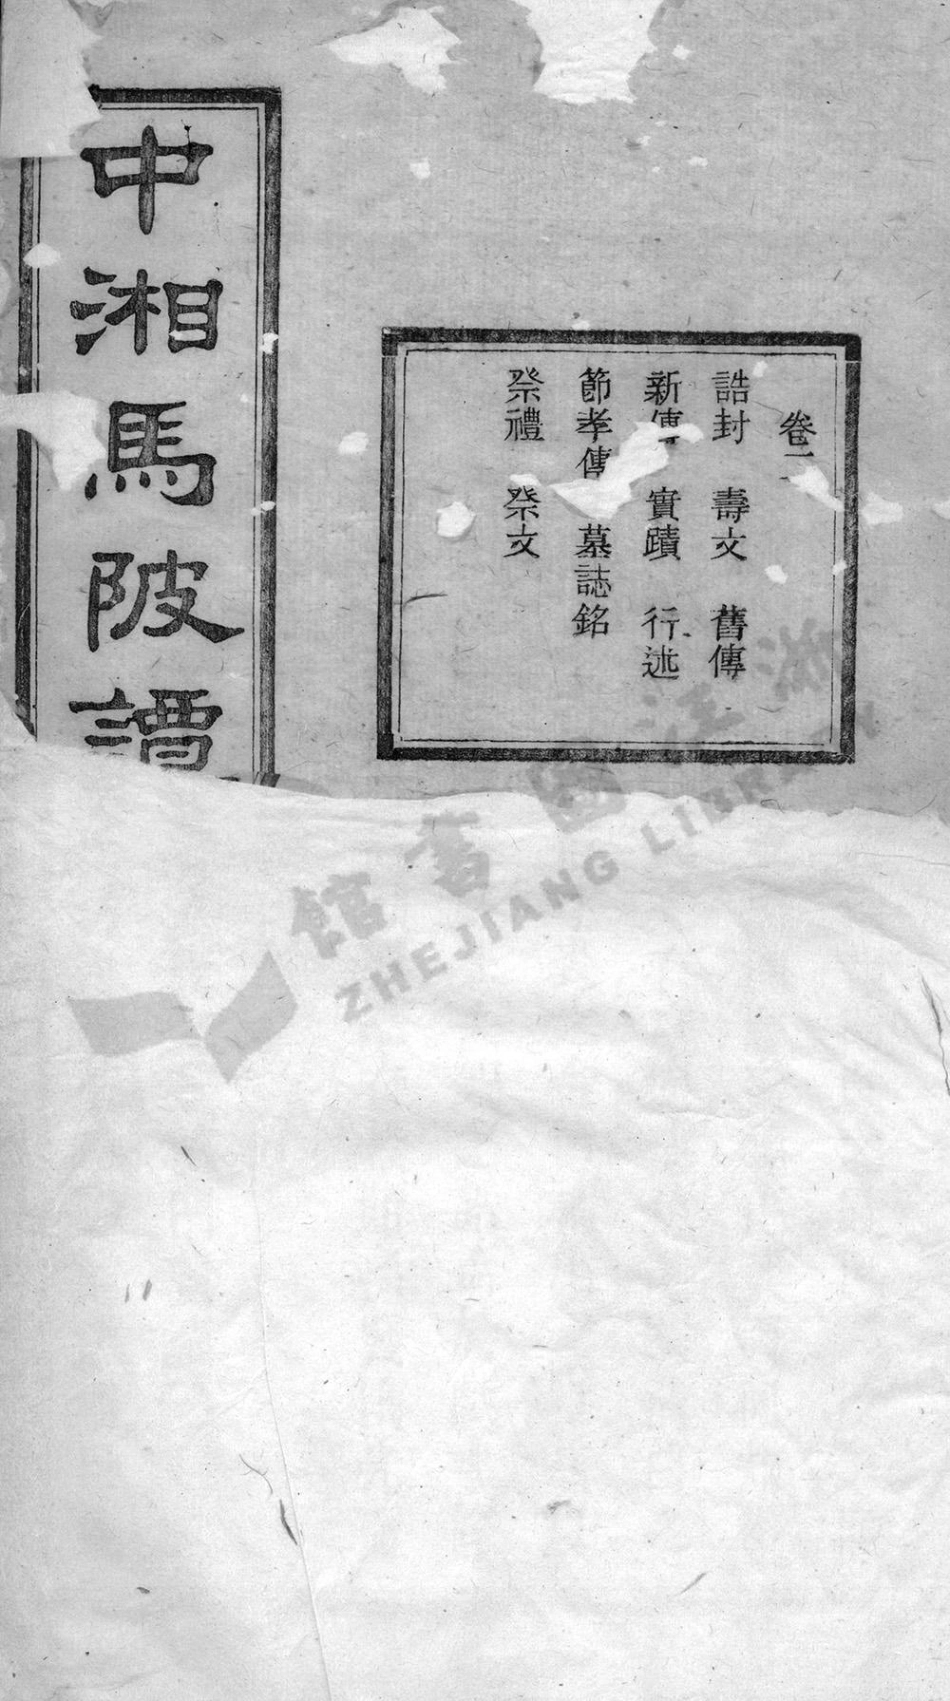 卷二
誥封 壽文 舊傳
新傳 實蹟 行述
節孝傳 墓誌銘
祭禮 祭文
中湘馬陂譚
浙江圖書館
ZHEJIANG LIBRARY